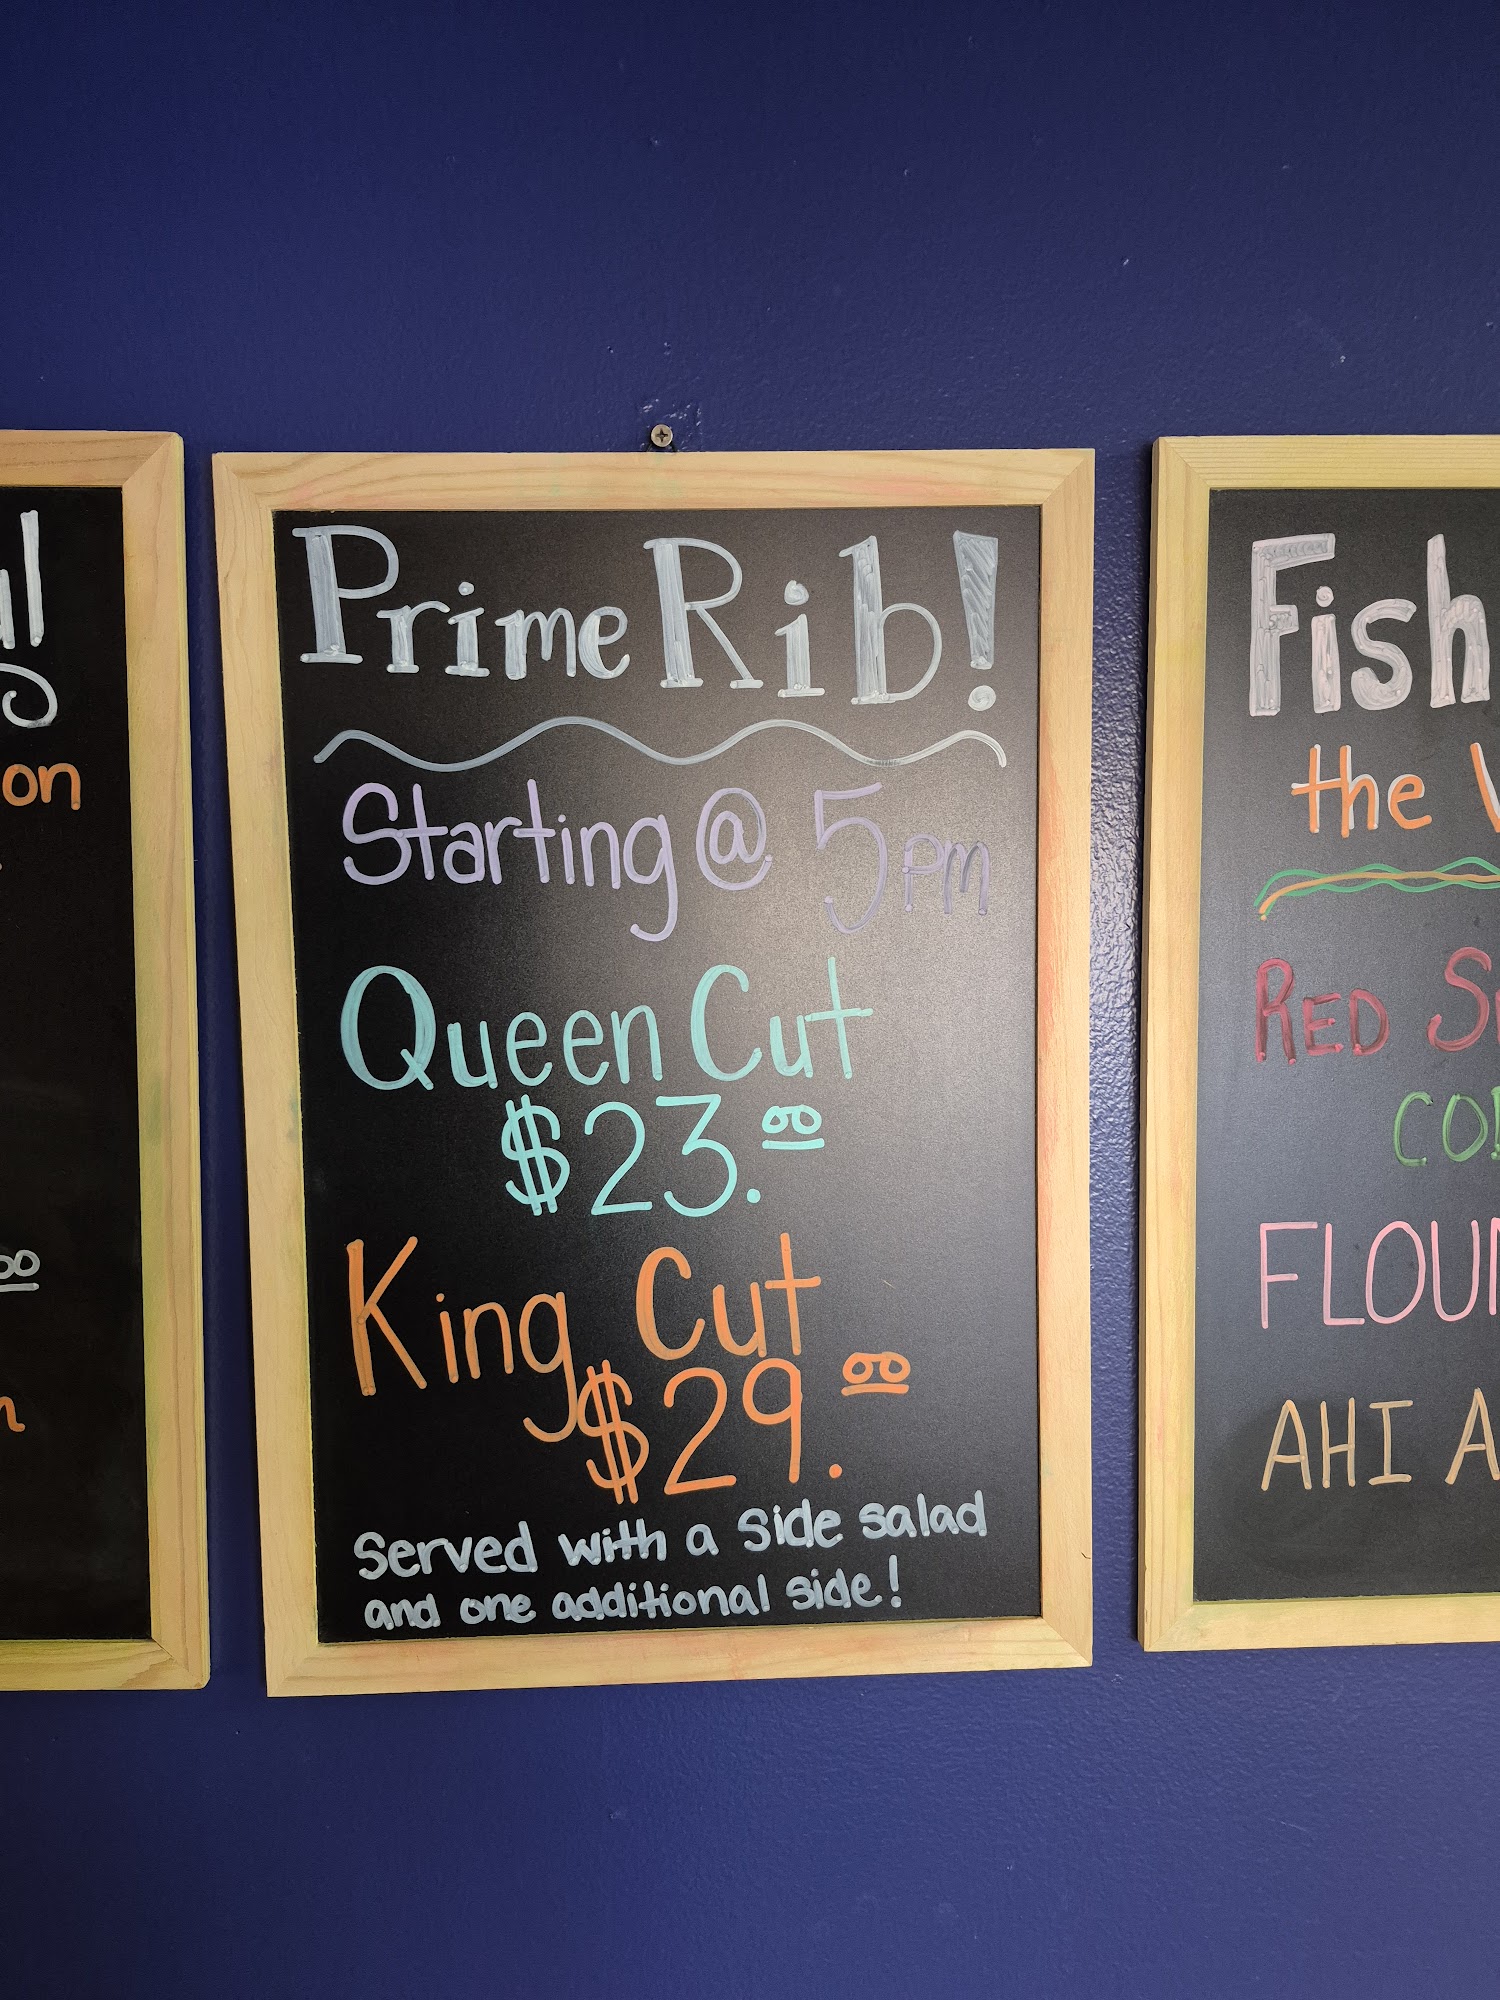 Prime Rib!
Starting @ 5pm
Queen Cut
$23.00
King Cut
$29.00
Served with a side salad
and one additional side!
on
00
Fish
the
RED
FLOUN
AHI A